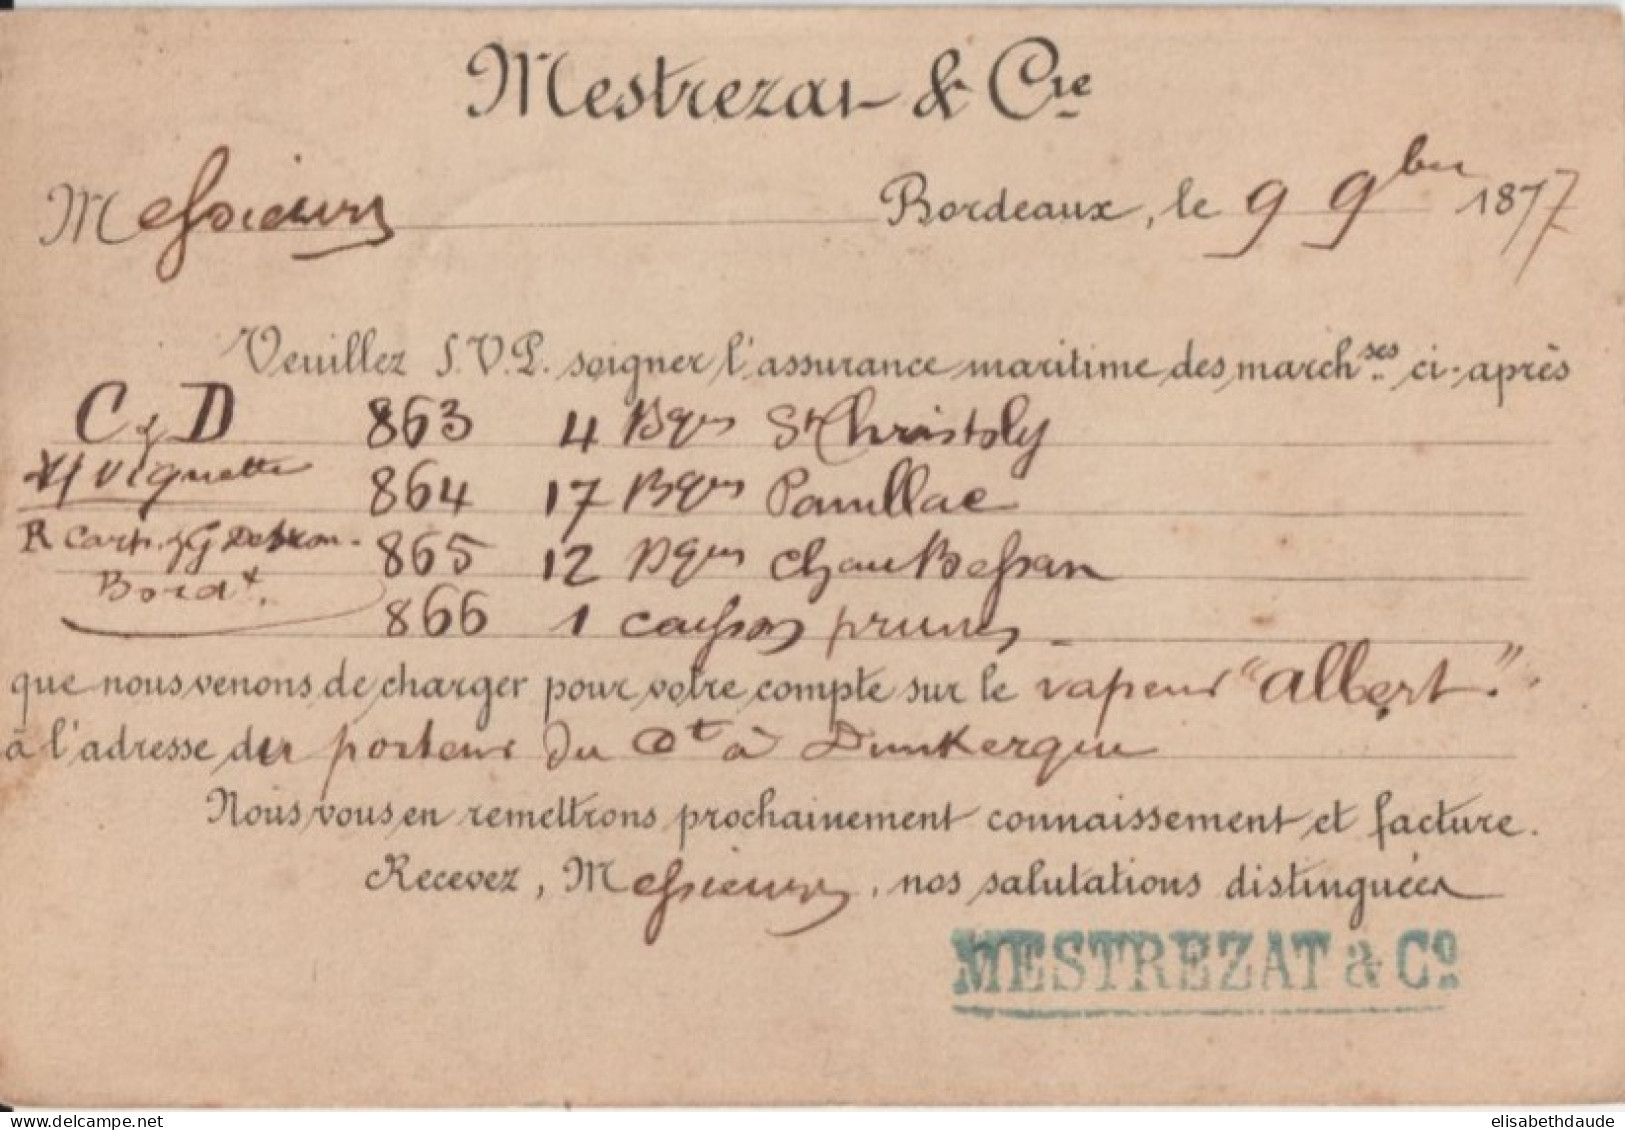 Mestrezat & Cie
Messieurs Bordeaux, le 9 9bre 1877
Veuillez S.V.P. soigner l'assurance maritime des marchses ci-après
C & D 863 4 Bques St Christoly
Vignette 864 17 Bques Pauillac
R Bord 865 12 Bques Chau Bessan
866 1 caisson prunes
que nous venons de charger pour votre compte sur le vapeur "Albert"
à l'adresse du porteur du Ct à Dunkerque
Nous vous en remettrons prochainement connaissement et facture.
Recevez, Messieurs, nos salutations distinguées
MESTREZAT & Co
elisabethdaude
www.delcampe.net